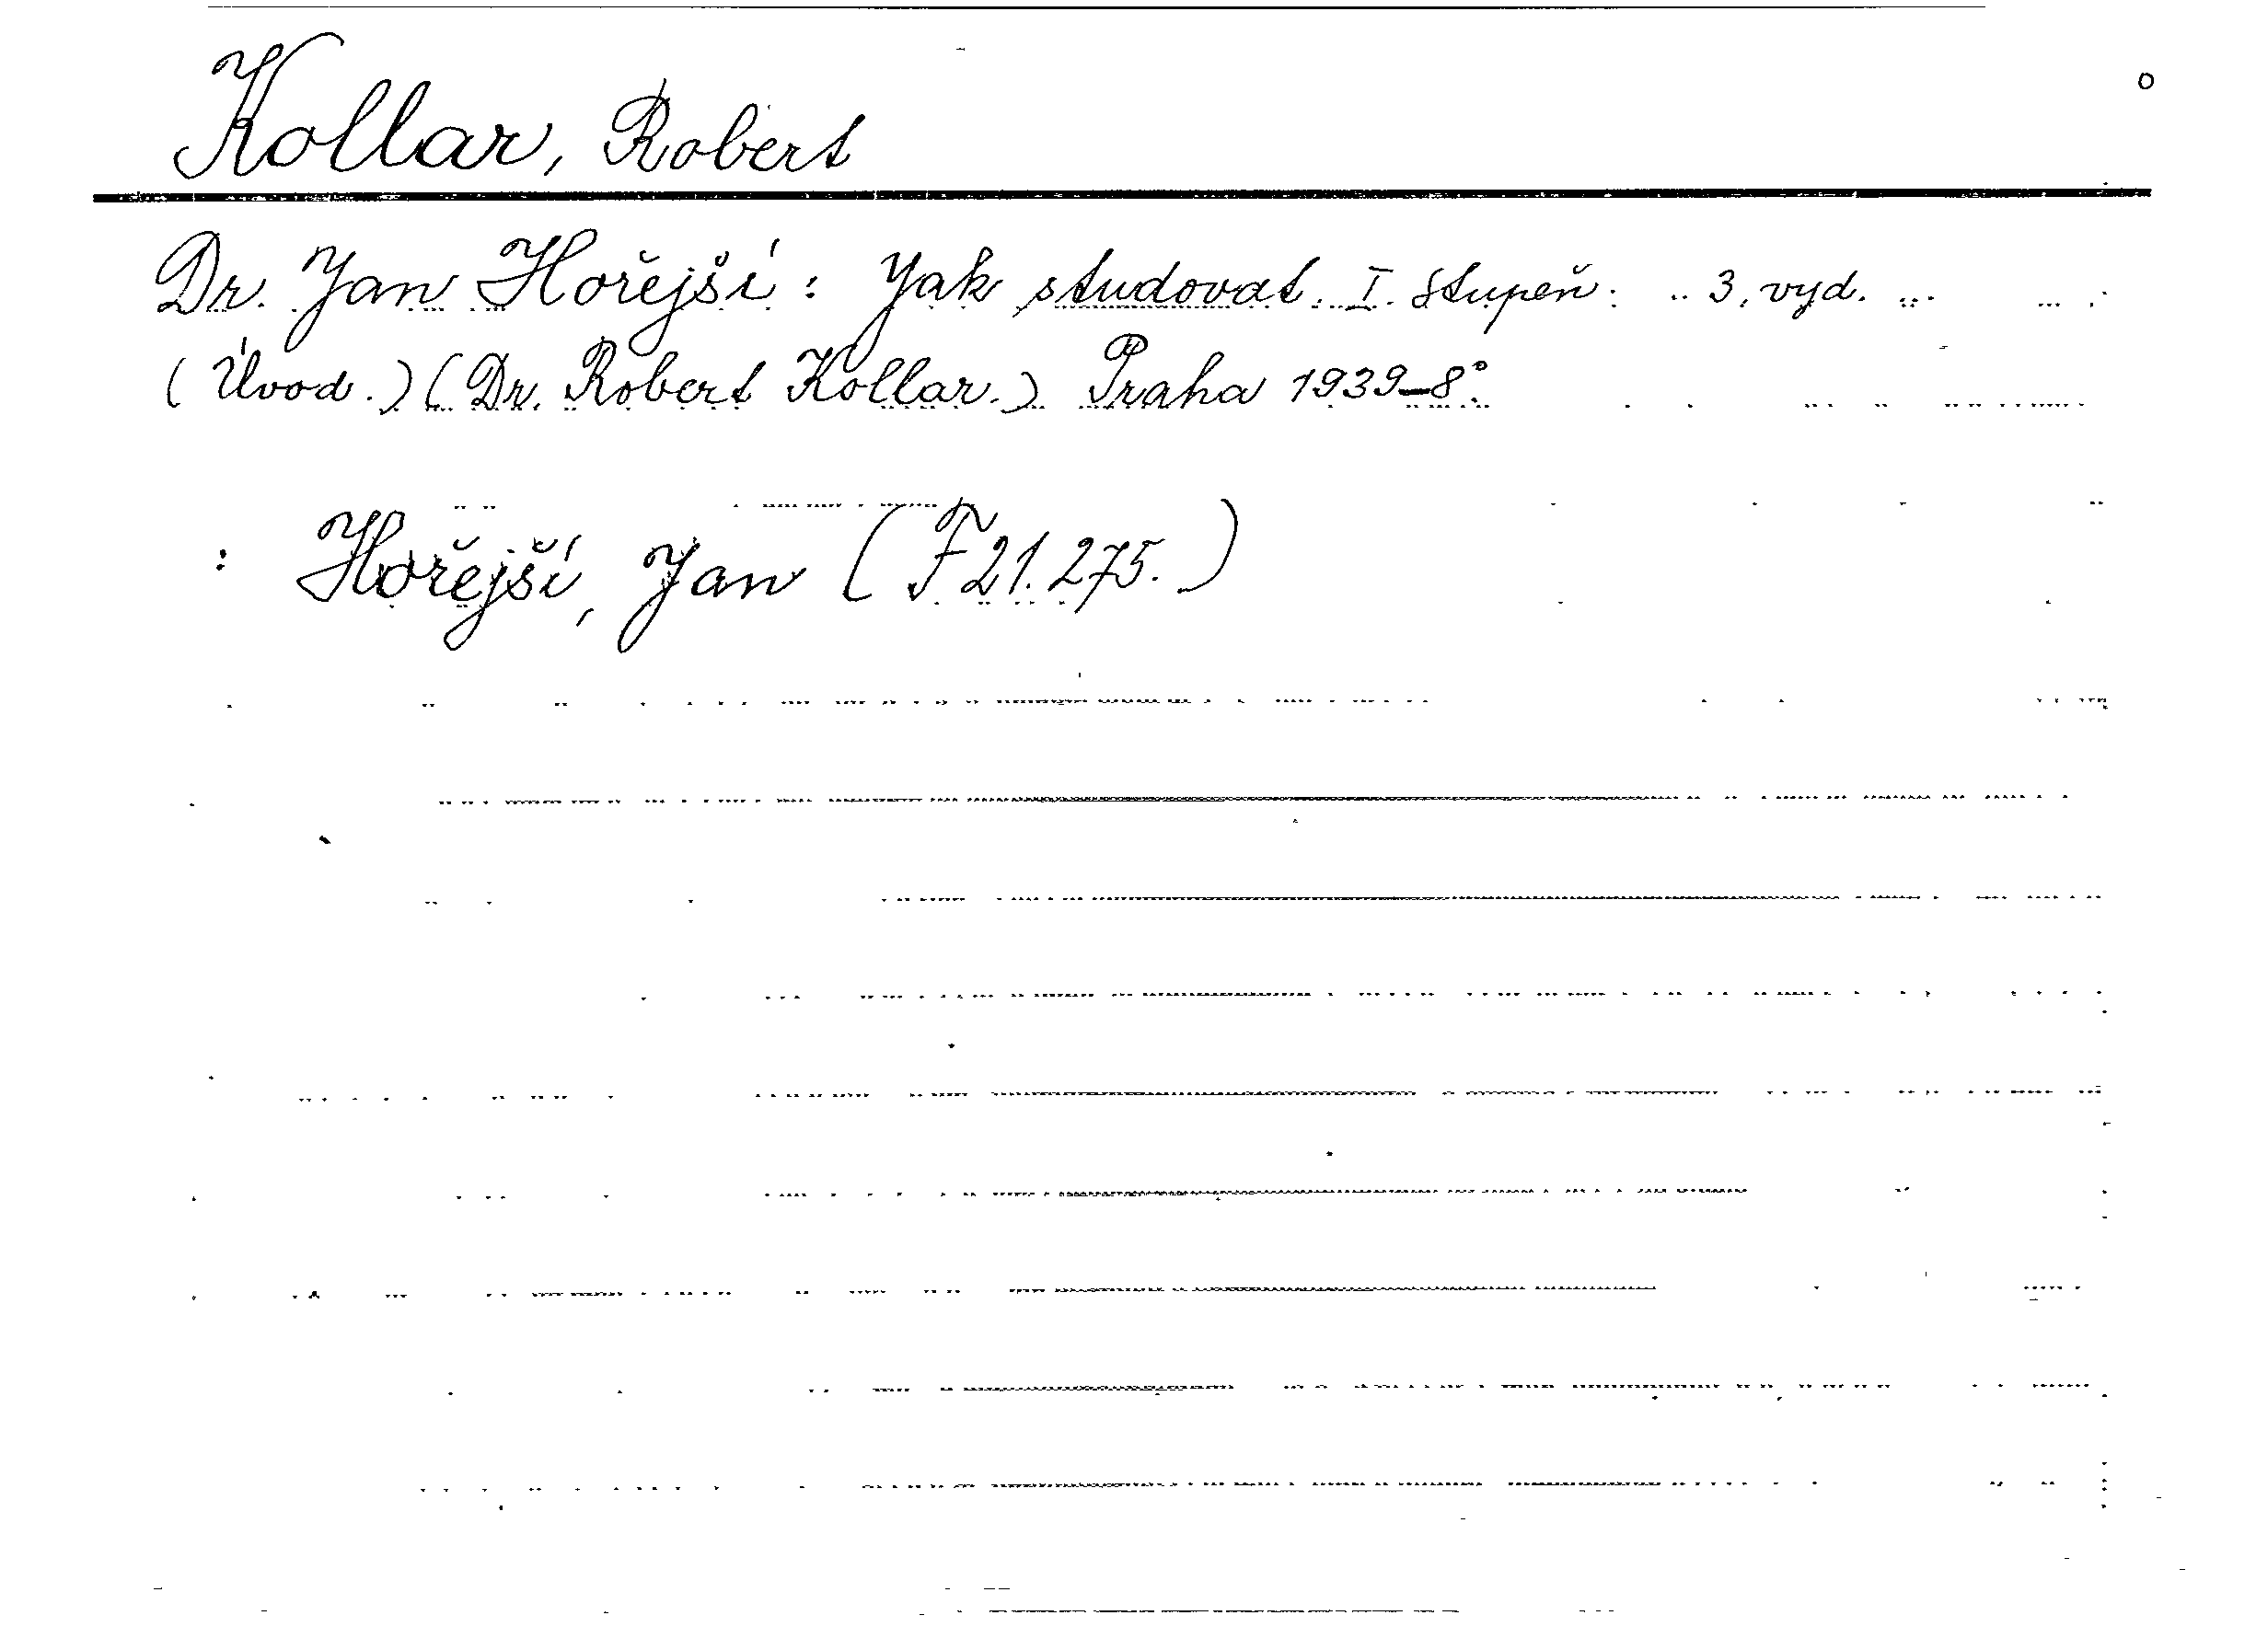 Kollar, Robert
Dr. Jan Hořejší: Jak studovat. I. stupeň. 3. vyd.
(Úvod.) (Dr. Robert Kollar.) Praha 1939-8°.
: Hořejší, Jan (F 21.275.)